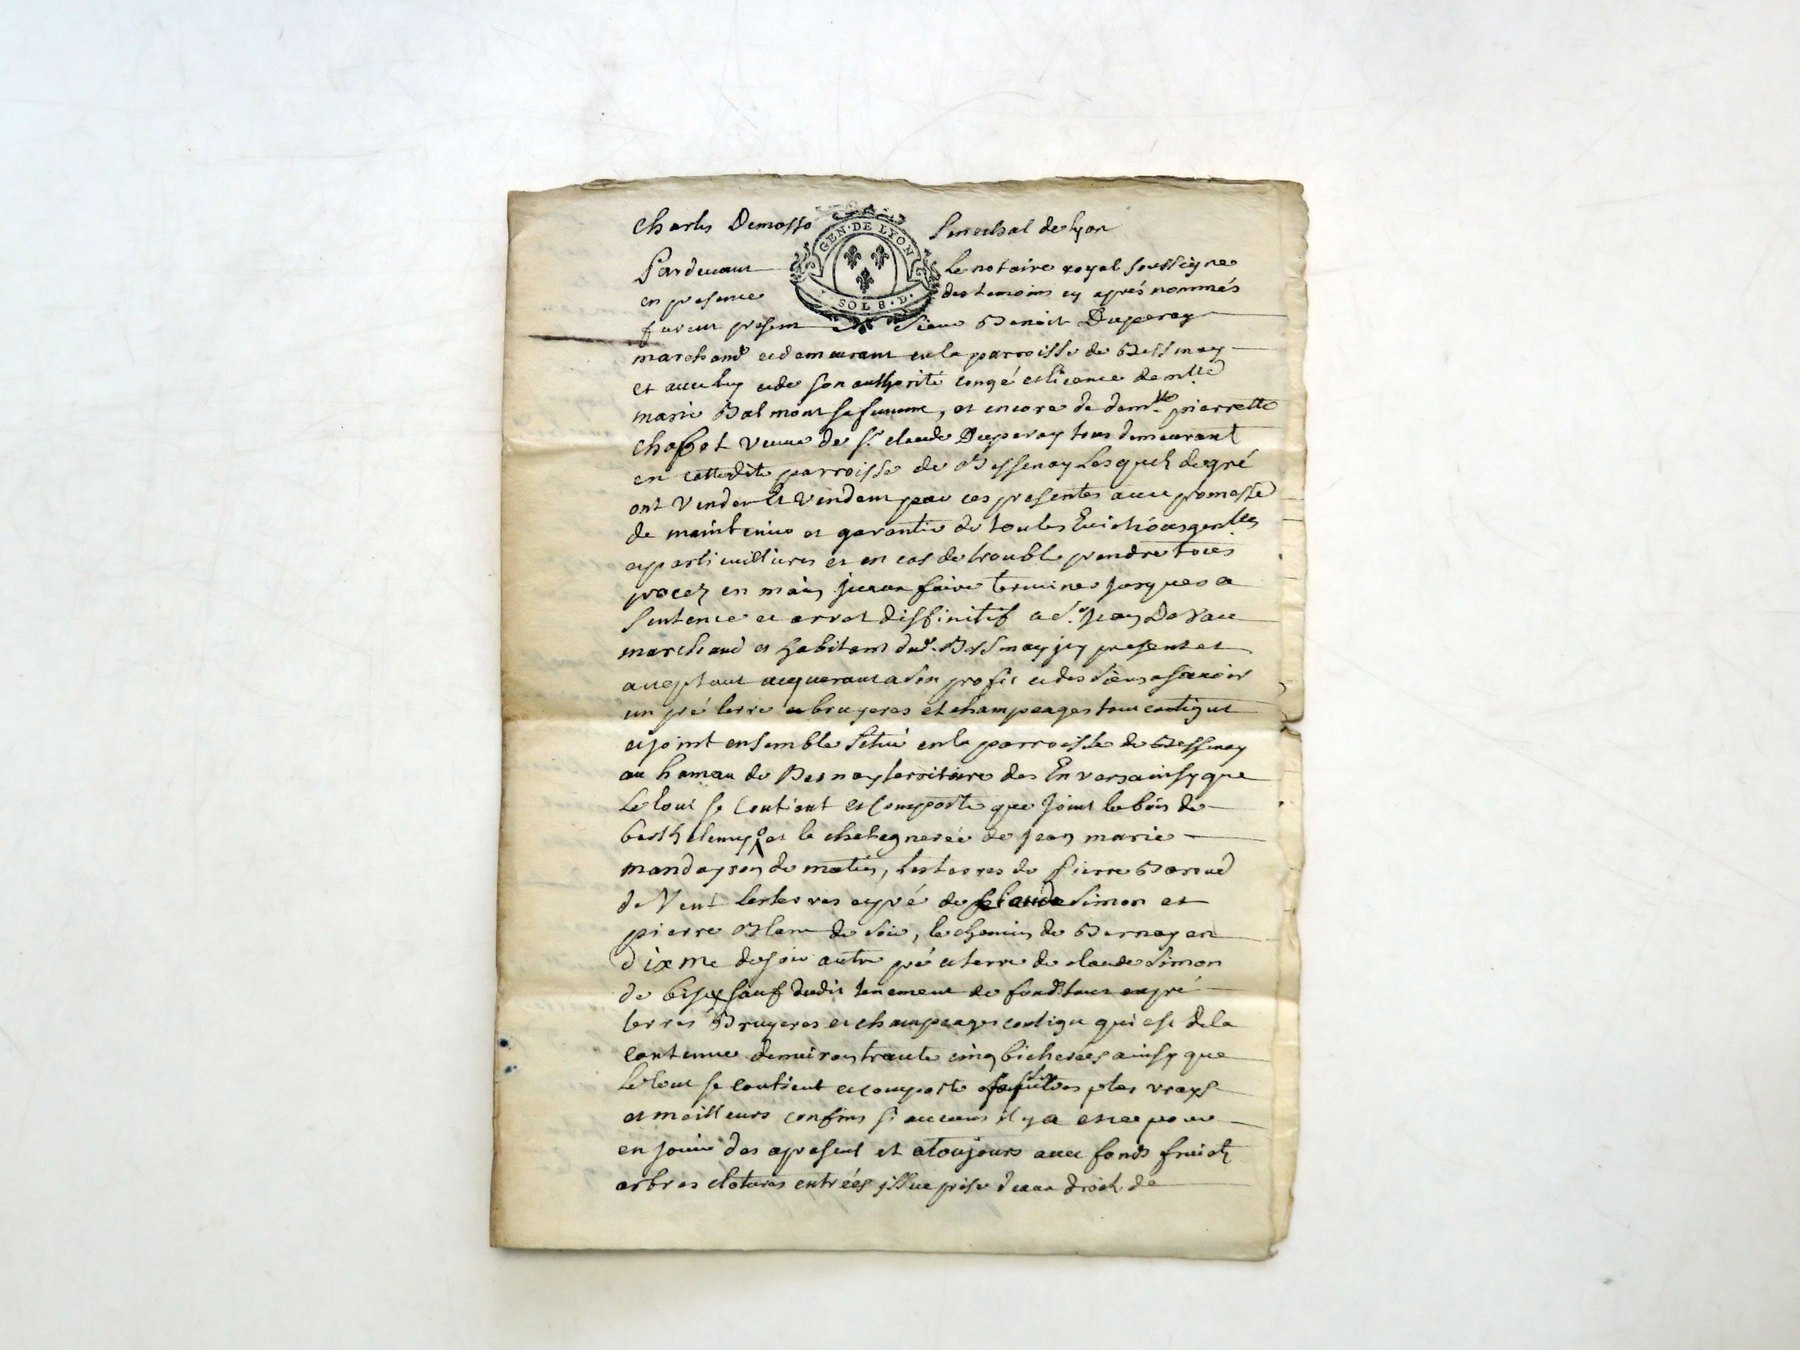 Charles Demasso Senechal de lyon
GEN · DE LYON
SOL 8 · D ·
Pardevant le notaire royal soussigne
en presence des temoins cy aprés nommés
furent presens Sieur Benoit Duperay
marchand et demeurant en la parroisse de Bessenay
et avec luy et de son authorité congé et licence
marie Balmont sa femme, et encore de dem.lle pierrette
veuve de S.r claude Duperay tous demeurant
en cettedite parroisse de Bessenay Lesquels de gré
ont Vendu et Vendent par ces presentes avec promesse
de maintenir et garantir de toutes Evictions gen.lles
et particullieres et en cas de trouble prendre tous
procez en main jceux faire terminer jusques a
Sentence et arrest diffinitif a S.r Jean
marchand et habitant dud. Bessenay jcy present et
acceptant acquerant a son profit et des siens asavoir
un pré terre et bruyeres et champeages tout contigus
et joint ensemble Situé en la parroisse de Bessenay
au hameau de Bernay territoire des Envers ainsy que
Le tout se Contient et Comporte que Joint le bois de
berthelemy et la chategnerée de jean marie
de matin, les terres de Pierre
de Vent les terres et pré de claude Simon et
pierre Blanc de Soir, le chemin de Bernay en
de soir autre pré et terre de claude Simon
de bise sauf dudit tenement de fonds
terres Bruyeres et champeages contigu qui est de la
contenue denviron trante cinq bicherées ainsy que
Le tout se contient et comporte plus vrays
et meilleurs confins si aucuns il y a
en jouir des apresent et atoujours avec fonds fruicts
arbres clotures entrées issue prise deau droict de